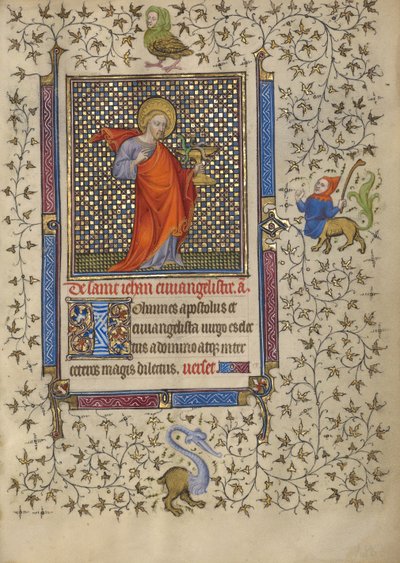 De saint iehan euuangelistre. a.
Iohannes apostolus et
euuangelista uirgo es elec
tus a domino atqz inter
ceteros magis dilectus. uerset